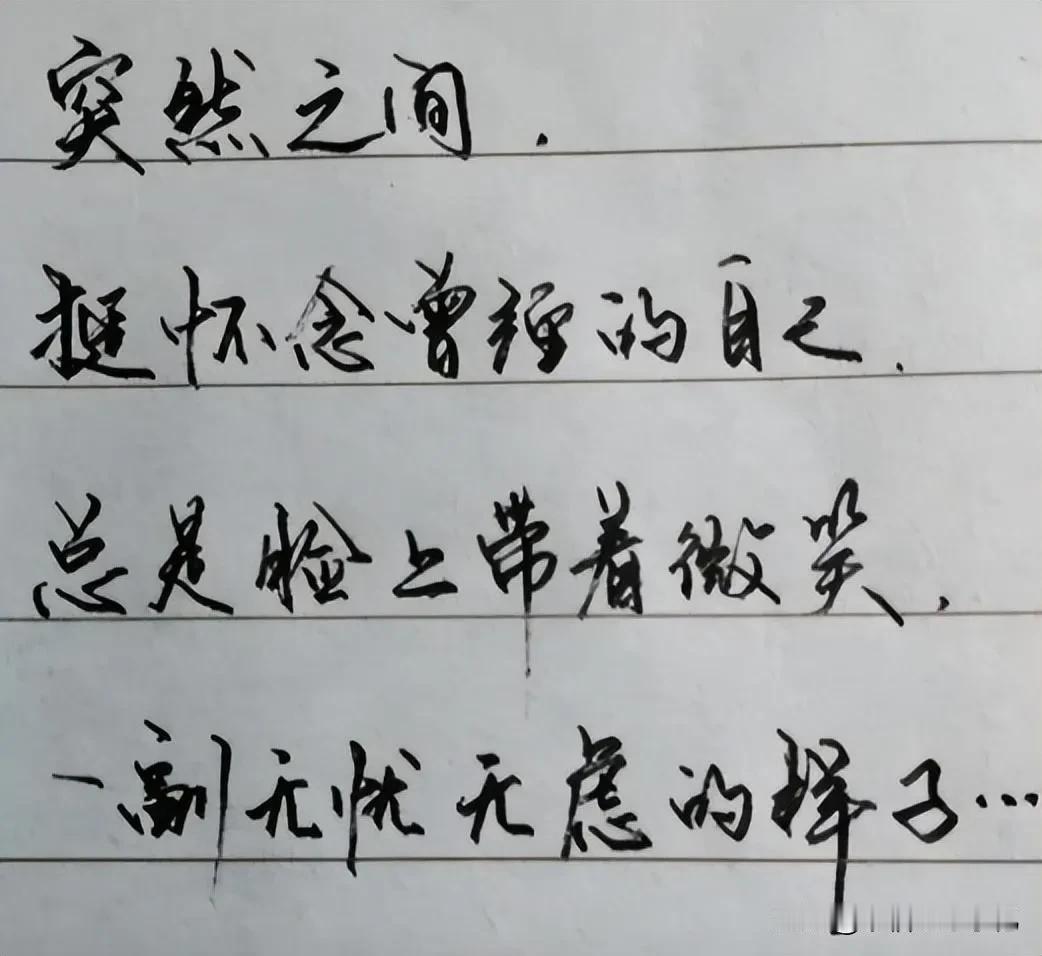 突然之间.
挺怀念曾经的自己.
总是脸上带着微笑.
一副无忧无虑的样子…